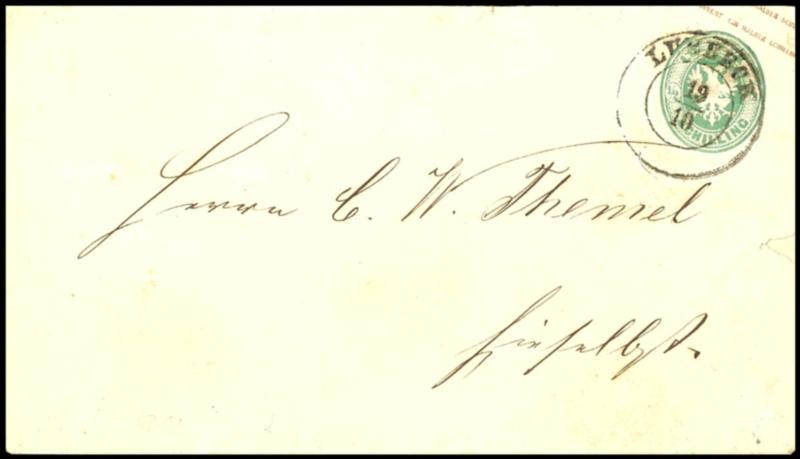 LUBECK
19
10
SCHILLING
Herrn C. W. Themel
hieselbst.